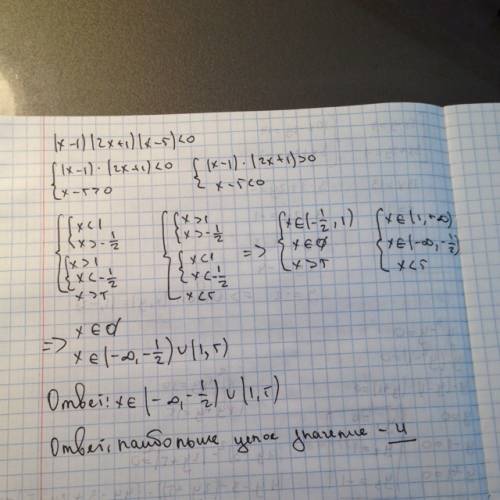 (x-1)(2x+1)(x-5)<0
{(x-1)·(2x+1)<0 {(x-1)·(2x+1)>0
x-5>0 x-5<0
{x<1 {x>1 => {x∈(-1/2, 1) {x∈(1,+∞)
x>-1/2 x>-1/2 x∈∅ x∈(-∞,-1/2)
{x>1 {x<1 x>5 x<5
x<-1/2 x<-1/2
x>5 x<5
=> x∈∅
x∈(-∞,-1/2)∪(1,5)
Ответ: x∈(-∞,-1/2)∪(1,5)
Ответ, наибольше целое значение - 4